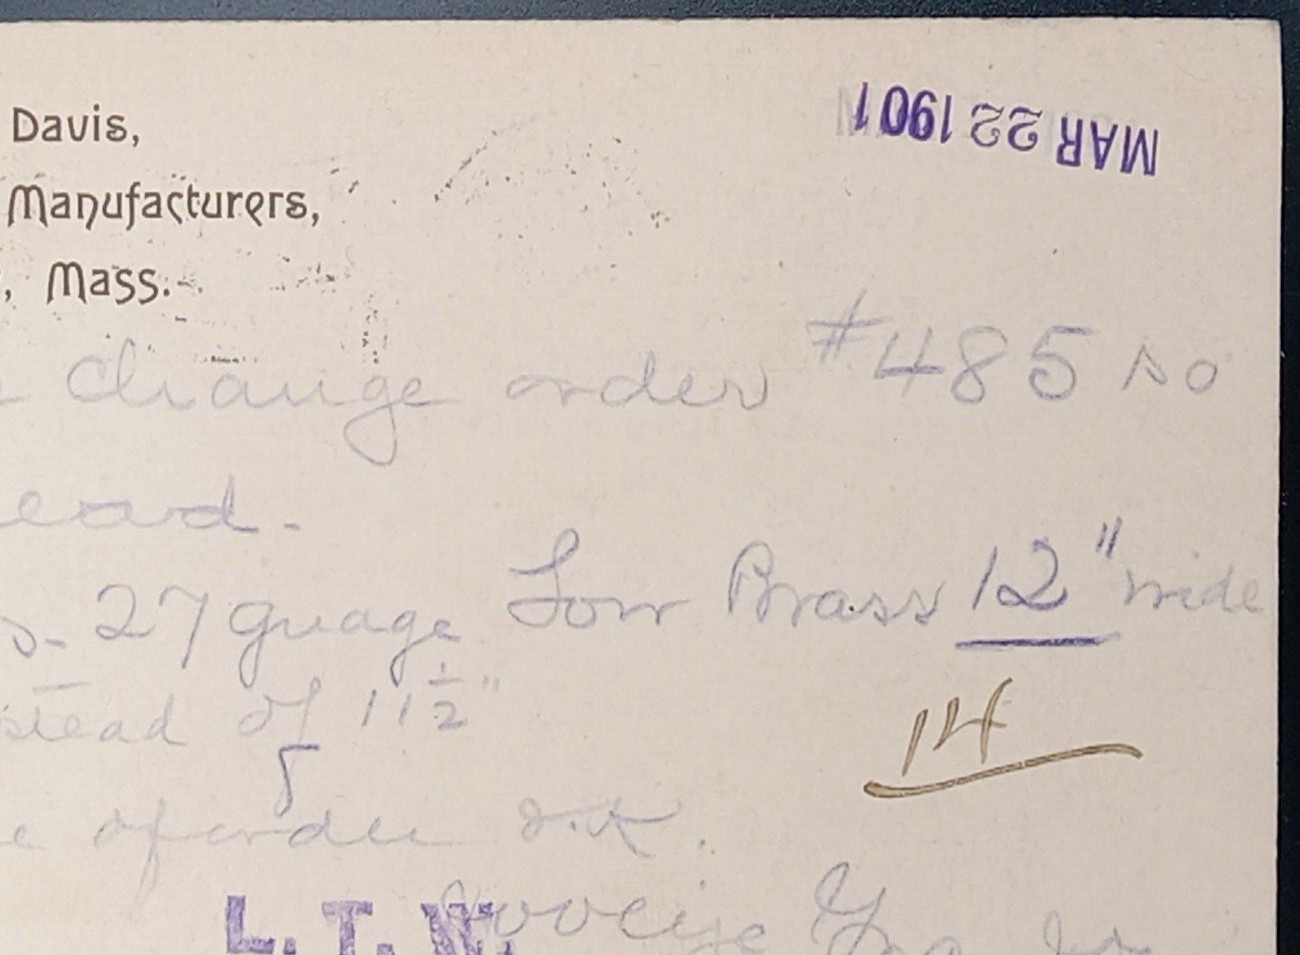 Davis,
MAR 22 1901
Manufacturers,
, Mass.
Change order #485 so
ead.
s. 27 guage Low Brass 12" wide
stead of 11 1/2"
14
5
e of order o.k.
L. T. W.